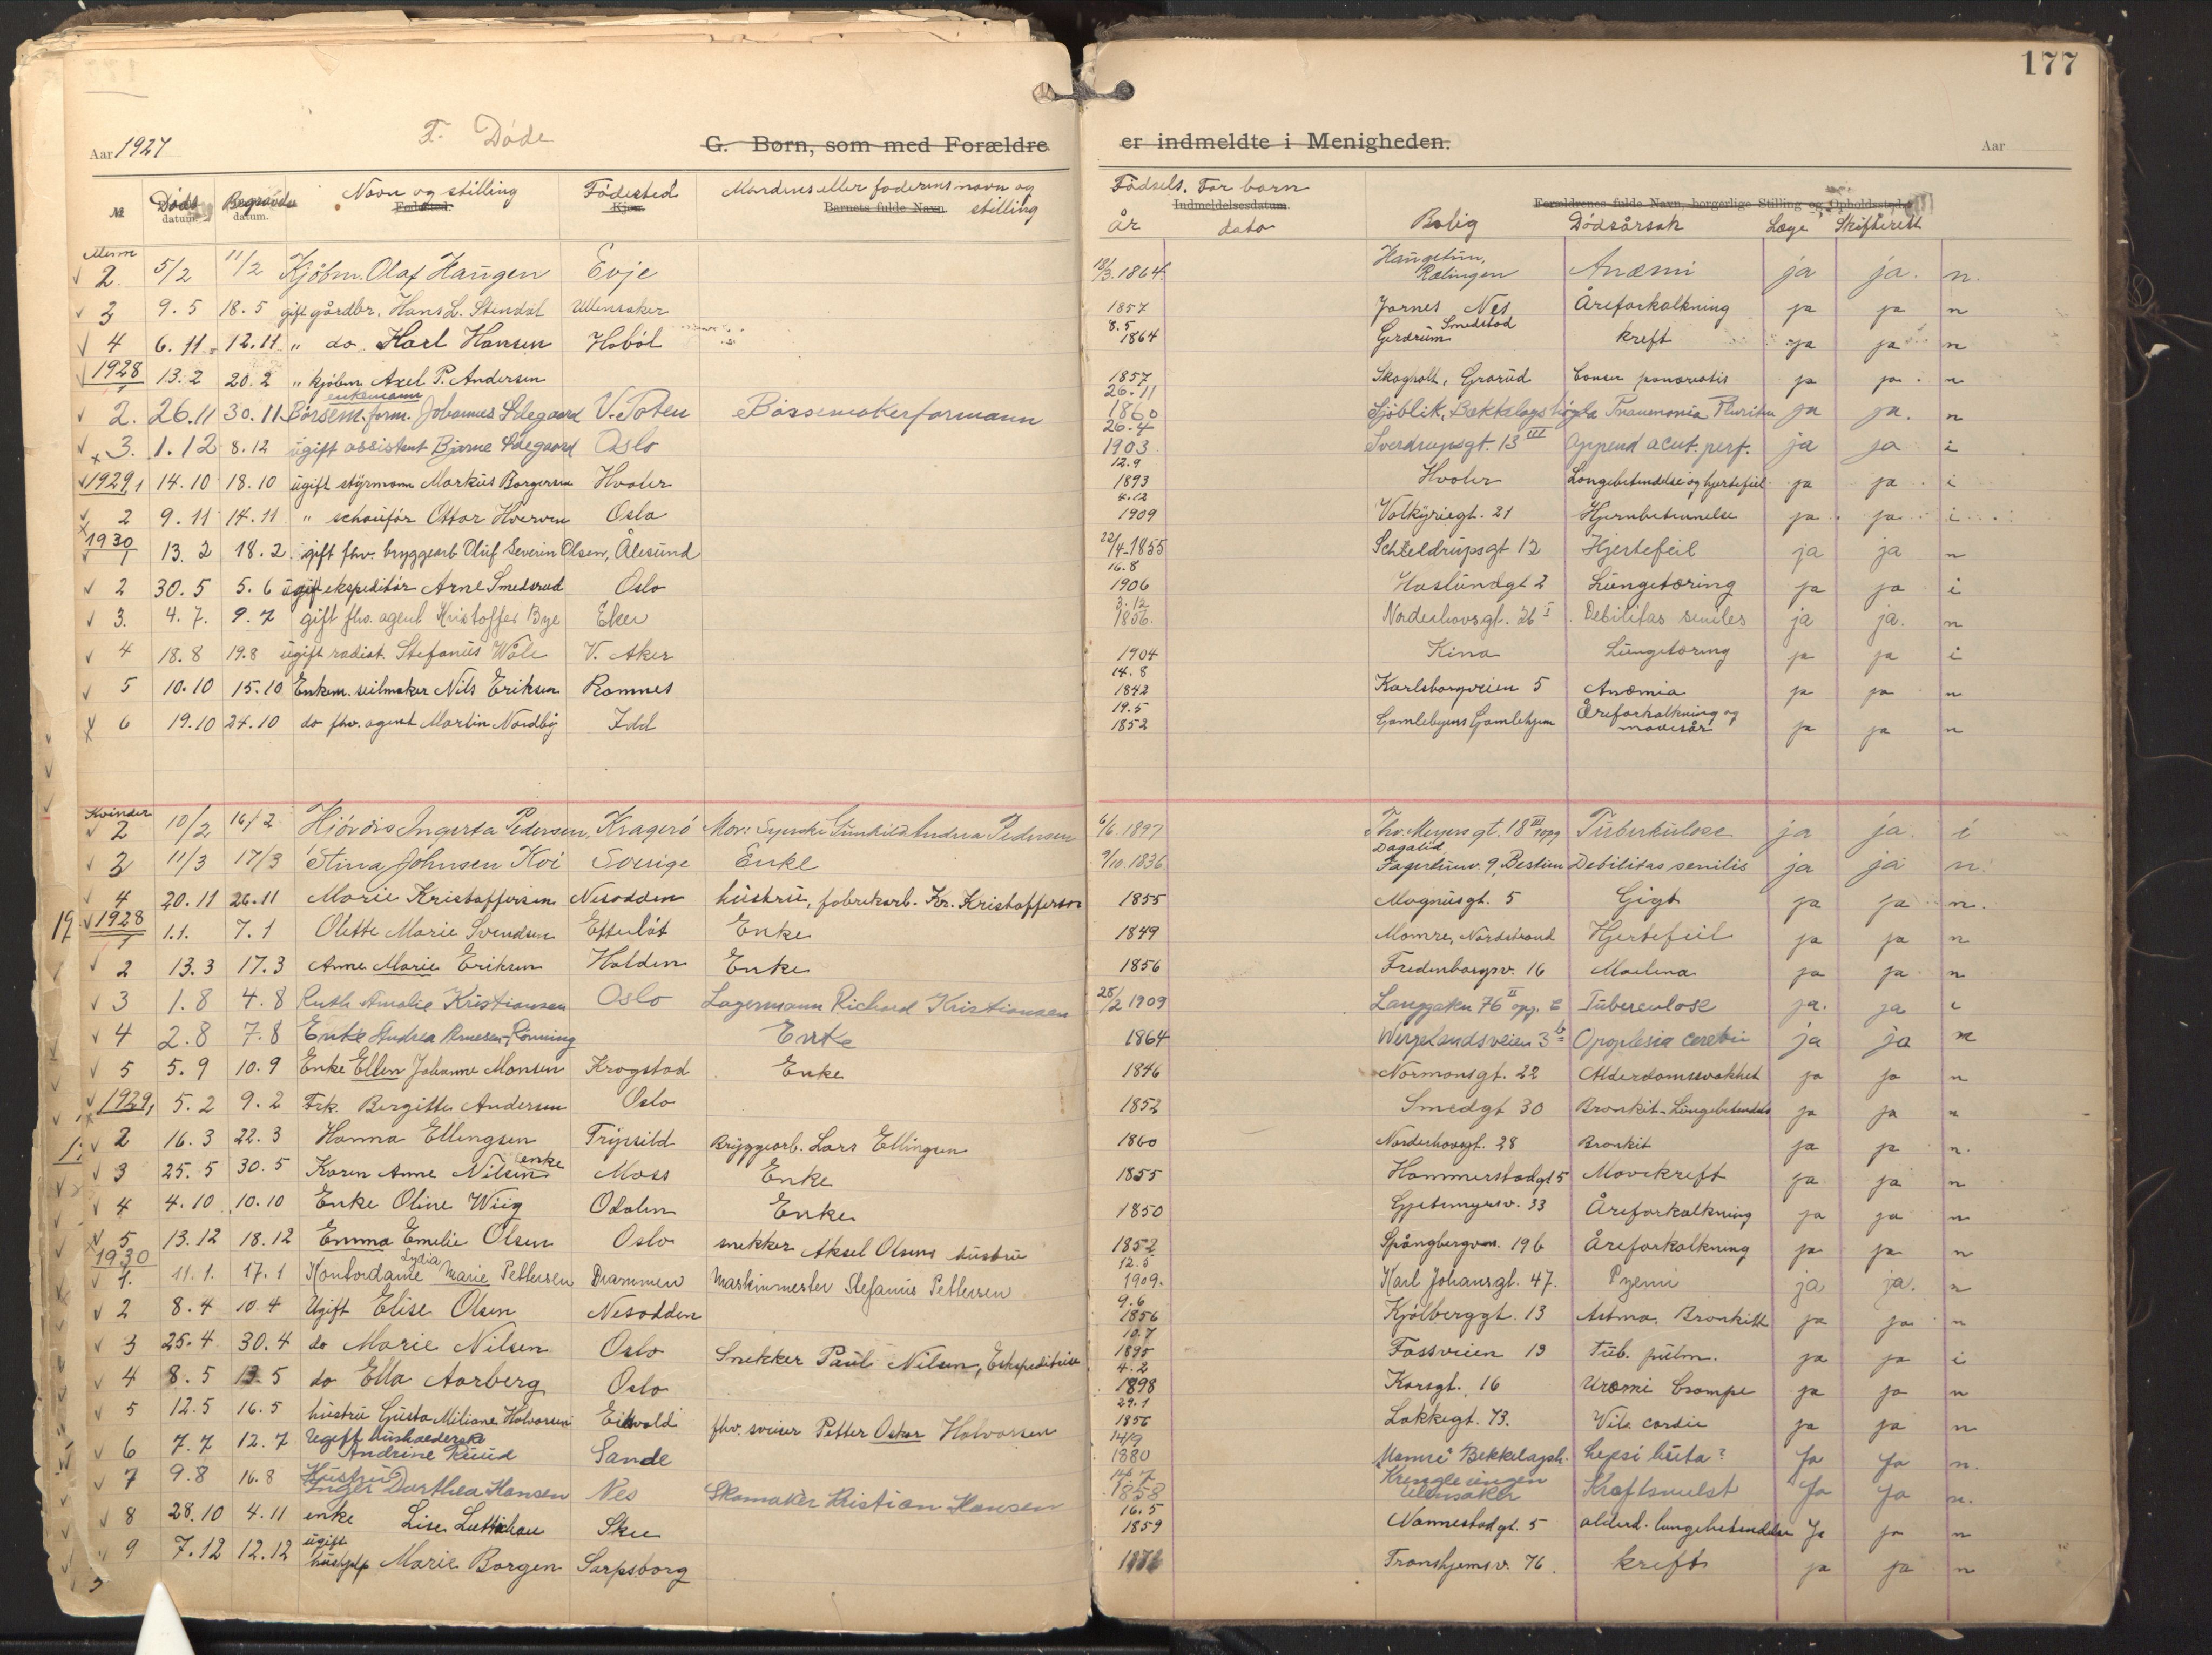 177
F. Døde
Aar 1927 G. Børn, som med Forældre er indmeldte i Menigheden. Aar
№ Døds datum. Begravde datum. Navn og stilling Fødested Mandens eller faderens navn og stilling Fødsels. År For barn dato Bolig Dødsårsak Læge Skifterett
Fødested. Kjøn. Barnets fulde Navn. Indmeldelsesdatum. Forældrenes fulde Navn, borgerlige Stilling og Opholdssted
Menn
2. 5/2 11/2 Kjøbm. Olaf Haugen Evje 18/3. 1864. Haugetun, Rælingen Anæmi ja ja. n.
3 9.5 18.5 gift gårdbr. Hans L. Stendal Ullensaker 1857 Jarnes Nes Åreforkalkning ja ja n
4 6.11 12.11 " do Karl Hansen Hobøl 8.5 1864 Smedstad Gerdrum kreft ja ja n
1928
1 13.2 20.2 " kjøbm. Axel P. Andersen 1857 Skogholt, Grorud Cancer pancreatis ja ja n
2. 26.11 30.11 enkemann Børsem. form. Johannes Ødegaard V. Toten Bøssemakerformann 26.11 1860 Sjøblik, Bekkelagshøgda Pneumonia Pluritis ja ja. n
3. 1.12 8.12 ugift assistent Bjarne Ødegaard Oslo 26.4 1903 Sverdrupsgt. 13 III Append acut. perf. ja ja i
1929, 1 14.10 18.10 ugift styrmann Markus Borgersen Hvaler 12.9 1893 Hvaler Lungebetendelse og hjertefeil ja ja i
2 9.11 14.11 " schaufør Ottar Hverven Oslo 4.12 1909 Valkyriegt. 21 Hjernbetennelse ja ja i
1930
1 13.2 18.2 gift fhv. bryggearb Oluf Severin Olsen, Ålesund 22/4-1855 Schleldrupsgt 12 Hjertefeil ja ja n
2 30.5 5.6 ugift ekspeditør Arne Smedsrud Oslo 16.8 1906 Haslundgt 2 Lungetæring ja ja i
3. 4.7. 9.7 gift fhv. agent Kristoffer Bye Eker 3.12 1856. Norderhovsgt. 26 I Debilitas seniles ja ja. n
4 18.8 19.8 ugift radist. Stefanus Wåle V. Aker 1904 Kina Lungetæring ja ja i
5 10.10 15.10 Enkem. seilmaker Nils Eriksen Ramnes 14.8 1842 Karlsborgveien 5 Anæmia ja ja n
6 19.10 24.10 do fhv. agent Martin Nordby Idd 19.5 1852 Gamlebyens Gamlehjem Åreforkalkning og mavesår ja ja n
Kvinder
2 10/2 16/2 Hjørdis Ingerta Pedersen, Kragerø Mor: Syerske Gunhild Andrea Pedersen 6/6. 1897 Thv. Meyers gt. 18 III opg Tuberkulose ja ja. i
3 11/3 17/3 Stina Johnsen Koi Sverige Enke 9/10. 1836. Dagalid Fagertunv. 9, Bestum Debilitas senilis ja ja n.
4 20.11 26.11 Marie Kristoffersen Nesodden hustru, fabrikarb. Kr. Kristoffersen 1855 Magnusgt. 5 Gigt ja ja n.
19 1928
1 1.1. 7.1 Olette Marie Svendsen Efteløt Enke 1849 Mamre, Nordstrand Hjertefeil ja ja n
2 13.3 17.3 Anne Marie Eriksen Halden Enke 1856 Fredensborgsv. 16 Maelena ja ja n
3 1.8 4.8 Ruth Amalie Kristiansen Oslo Lagermann Richard Kristiansen 28/2 1909 Langgaten 76 II opg. C Tuberculose ja. ja i
4 2.8 7.8 Enke Andrea Arnesen Rønning Enke 1864 Wergelandsveien 3 b Apoplesia cerebri ja ja n
5 5.9 10.9 Enke Ellen Johanne Monsen Krogstad Enke 1846 Normansgt. 22 Alderdomssvakhet ja ja n
1929, 5.2 9.2 Frk. Bergitte Andersen Oslo 1852 Smedgt 30 Bronkit-Lungebetendels ja ja n
2 16.3 22.3 Hanna Ellingsen Trysild Bryggearb. Lars Ellingsen 1860 Norderhovsgt. 28 Bronkit ja ja n.
3 25.5 30.5 Karen Anne Nilsen enke Moss Enke 1855 Hammerstadgt 5 Mavekreft ja ja n
4 4.10 10.10 Enke Oline Wiig Odalen Enke 1850 Gjetemyrsv. 33 Åreforkalkning ja ja n
5 13.12 18.12 Emma Emelie Olsen Oslo snekker Aksel Olsens hustru 1852 Spångbergvn. 19b Åreforkalkning ja ja n
1930
1. 11.1. 17.1 Kontordame Lydia Marie Pettersen Drammen Maskinmester Stefanus Pettersen 12.5 1909. Karl Johansgt. 47. Pyemi ja ja. n
2 8.4 10.4 Ugift Elise Olsen Nesodden 9.6 1856 Kjølberggt. 13 Astma, Bronkitt ja ja n
3 25.4 30.4 do Marie Nilsen Oslo Snekker Paul Nilsen, Eskpeditrise 10.7 1895 Fossveien 13 Tub. pulm. ja ja i
4 8.5 13.5 do Ella Aarberg Oslo 4.2 1898 Korsgt. 16 Uræmi Crampe ja ja n
5 12.5 16.5 hustru Gusta Miliane Halvorsen Eidsvold fhv. sveiser Petter Oskar Halvorsen 29.1 1856 Lakkegt. 73. Vit. cordis ja ja n
6 7.7 12.7 Ugift husholderske Andrine Ruud Sande 14/9 1880 "Mamre" Bekkelagsh. Lepsi buta? Ja Ja n.
7 9.8 16.8 Hustru Inger Dorthea Hansen Nes Skomaker Kristian Hansen 1858 Krengleungen Ullensaker Kræftsvulst Ja Ja n.
8 28.10 4.11 enke Lise Luttichau Skee 16.5 1859 Nannestadgt. 5 alderd. lungebetendelse Ja ja n
9 7.12 12.12 ugift hushjelp Marie Borgen Sarpsborg Tronhjemsv. 76. kreft ja ja n